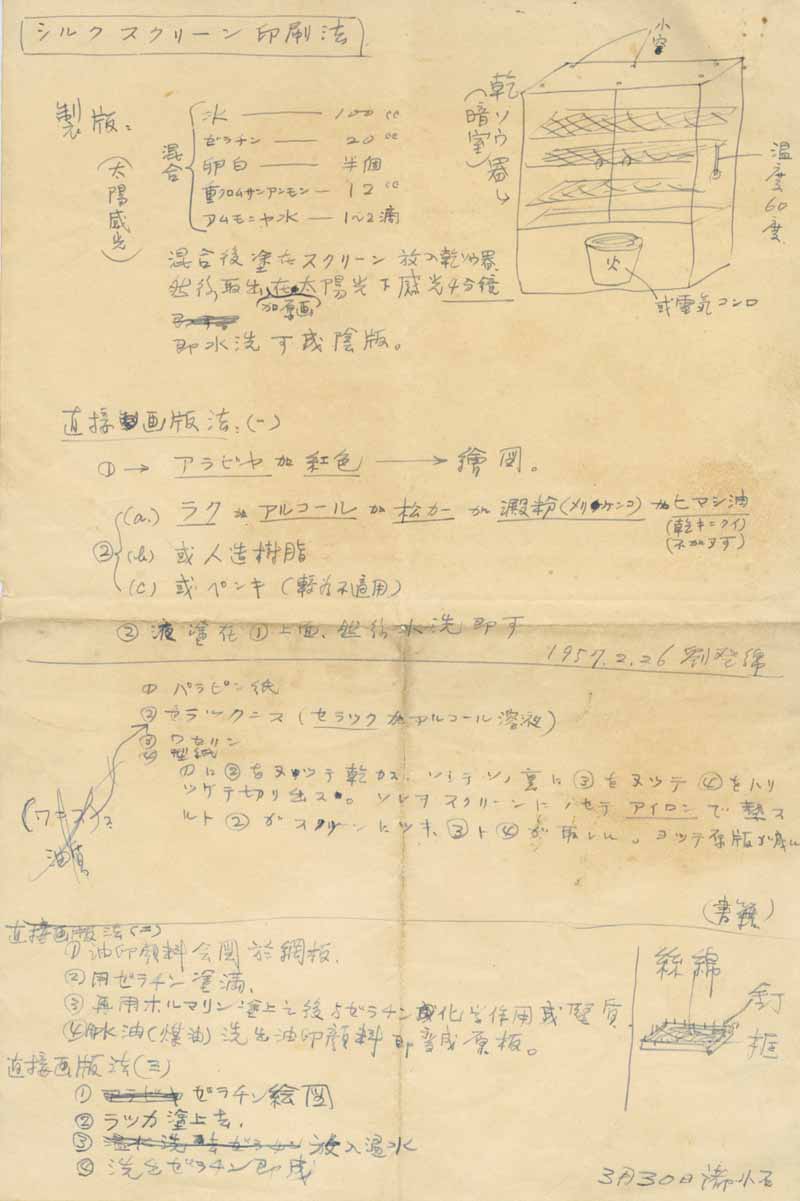 シルクスクリーン印刷法
製版：
（太陽感光）
混合
水 ─── 100cc
ゼラチン ─── 20cc
卵白 ─── 半個
重クロムサンアンモン ─ 12cc
アムモニヤ水 ── 1〜2滴
小穴
乾ソウ器
（暗室）
温度60度
火
或電気コンロ
混合後塗在スクリーン 放入乾ソウ器
然後取出在太陽光下感光4分鐘
（加原画）
即水洗すc成陰版。
直接画版法：(一)
① → アラビヤ加紅色 → 繪図。
②
(a.) ラク加アルコール加松カー加澱粉(メリケンコ)加ヒマシ油
(乾キニクイ)
(b) 或人造樹脂
(c) 或ペンキ（較為不適用）
② 液塗在①上面、然後水洗即す
1957.2.26 劉登錦
① パラピン紙
② セラックニス（セラックカアルコール溶液）
③ ワセリン
④ 型紙
①に②をヌッテ乾カス、ソーテソノ裏に③をヌッテ④をハリ
ツケテ切リ出ス。ソレヲスクリーンにノセテアイロンで熱ス
ルト②がスクリーンにツキ、③ト④が取レル。ヨッテ原版が成ル
油質
（書籍）
直接画版法(二)
① 油印顔料会図於網板.
② 用ゼラチン塗満.
③ 再用ホルマリン塗上之後与ゼラチン成化学作用或堅質
④ 用水油(煤油)洗出油印顔料即当成原板。
絲綿
釘
框
直接画版法(三)
① ゼラチン絵図
② ラッカ塗上去.
③ 放入温水
④ 洗出ゼラチン即成
3月30日